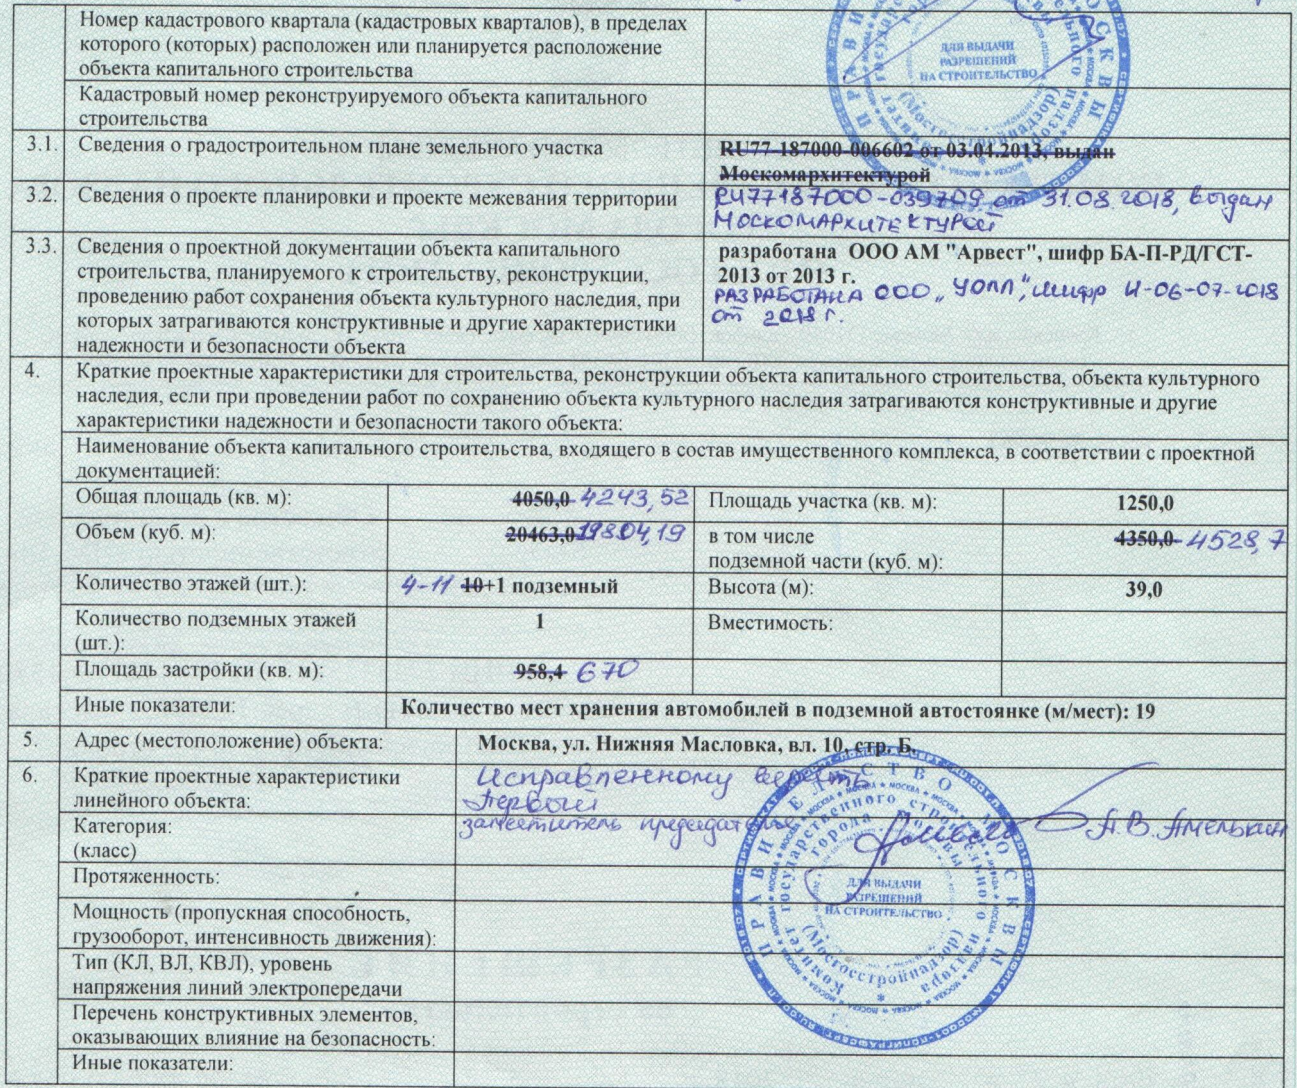 Номер кадастрового квартала (кадастровых кварталов), в пределах
которого (которых) расположен или планируется расположение
объекта капитального строительства
Кадастровый номер реконструируемого объекта капитального
строительства
ДЛЯ ВЫДАЧИ
РАЗРЕШЕНИЙ
НА СТРОИТЕЛЬСТВО
(Мосгосстройнадзор)
3.1. Сведения о градостроительном плане земельного участка
RU77-187000-006602 от 03.04.2013, выдан
Москомархитектурой
3.2. Сведения о проекте планировки и проекте межевания территории
RU77187000-039709 от 31.08.2018, выдан
МОСКОМАРХИТЕКТУРОЙ
3.3. Сведения о проектной документации объекта капитального
строительства, планируемого к строительству, реконструкции,
проведению работ сохранения объекта культурного наследия, при
которых затрагиваются конструктивные и другие характеристики
надежности и безопасности объекта
разработана ООО АМ "Арвест", шифр БА-П-РД/ГСТ-
2013 от 2013 г.
РАЗРАБОТАНА ООО „УОЛЛ", шифр И-06-07-2018
от 2018 г.
4. Краткие проектные характеристики для строительства, реконструкции объекта капитального строительства, объекта культурного
наследия, если при проведении работ по сохранению объекта культурного наследия затрагиваются конструктивные и другие
характеристики надежности и безопасности такого объекта:
Наименование объекта капитального строительства, входящего в состав имущественного комплекса, в соответствии с проектной
документацией:
Общая площадь (кв. м): 4050,0 4243,52 Площадь участка (кв. м): 1250,0
Объем (куб. м): 20463,0 19804,19 в том числе
подземной части (куб. м): 4350,0 4528,7
Количество этажей (шт.): 4-11 10+1 подземный Высота (м): 39,0
Количество подземных этажей
(шт.): 1 Вместимость:
Площадь застройки (кв. м): 958,4 670
Иные показатели: Количество мест хранения автомобилей в подземной автостоянке (м/мест): 19
5. Адрес (местоположение) объекта: Москва, ул. Нижняя Масловка, вл. 10, стр. Б.
6. Краткие проектные характеристики
линейного объекта:
Исправленному верить
Первый
заместитель председателя А.В. Амелькин
Категория:
(класс)
Протяженность:
Мощность (пропускная способность,
грузооборот, интенсивность движения):
Тип (КЛ, ВЛ, КВЛ), уровень
напряжения линий электропередачи
Перечень конструктивных элементов,
оказывающих влияние на безопасность:
Иные показатели:
ПРАВИТЕЛЬСТВО МОСКВЫ
Комитет государственного строительного надзора
города Москвы
(Мосгосстройнадзор)
ДЛЯ ВЫДАЧИ
РАЗРЕШЕНИЙ
НА СТРОИТЕЛЬСТВО